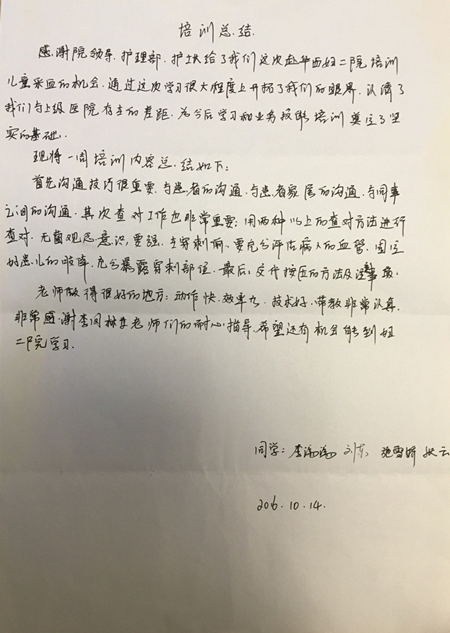 培训总结
感谢院领导、护理部、护士长给了我们这次赴华西妇二院培训
儿童采血的机会,通过这次学习很大程度上开拓了我们的眼界,认清了
我们与上级医院存在的差距,为今后学习和业务技能培训奠定了坚
实的基础。
现将一周培训内容总结如下:
首先沟通技巧很重要,与患者的沟通,与患者家属的沟通,与同事
之间的沟通,其次查对工作也非常重要,用两种以上的查对方法进行
查对,无菌观念意识要强,穿刺前要充分评估病人的血管,固定
好患儿的肢体,充分暴露穿刺部位,最后,交代按压的方法及注意事项。
老师做得很好的地方:动作快、效率高、技术好、带教非常认真,
非常感谢李国林等老师们的耐心指导,希望还有机会能到妇
二院学习。
同学:李海海 刘东 施雪娇 张云
206.10.14.